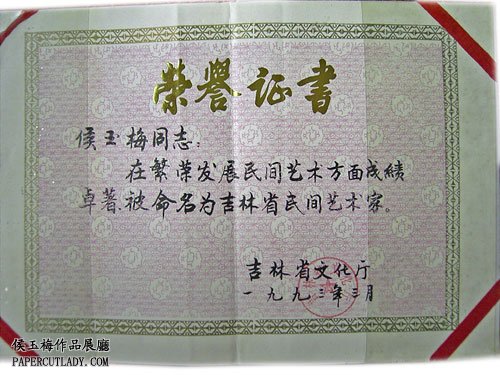 荣誉证书
侯玉梅同志:
在繁荣发展民间艺术方面成绩
卓著、被命名为吉林省民间艺术家。
吉林省文化厅
一九九三年三月
侯玉梅作品展廳
PAPERCUTLADY.COM